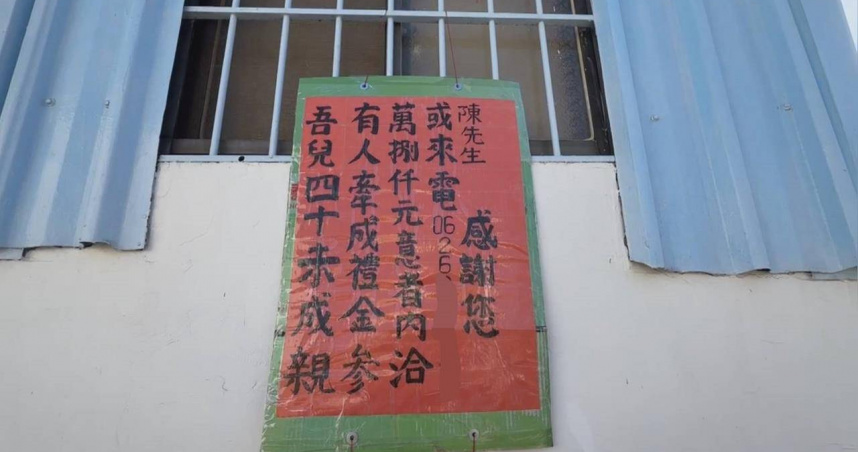 吾兒四十未成親
有人牽成禮金參
萬捌仟元意者內洽
或來電0626、
陳先生
感謝您